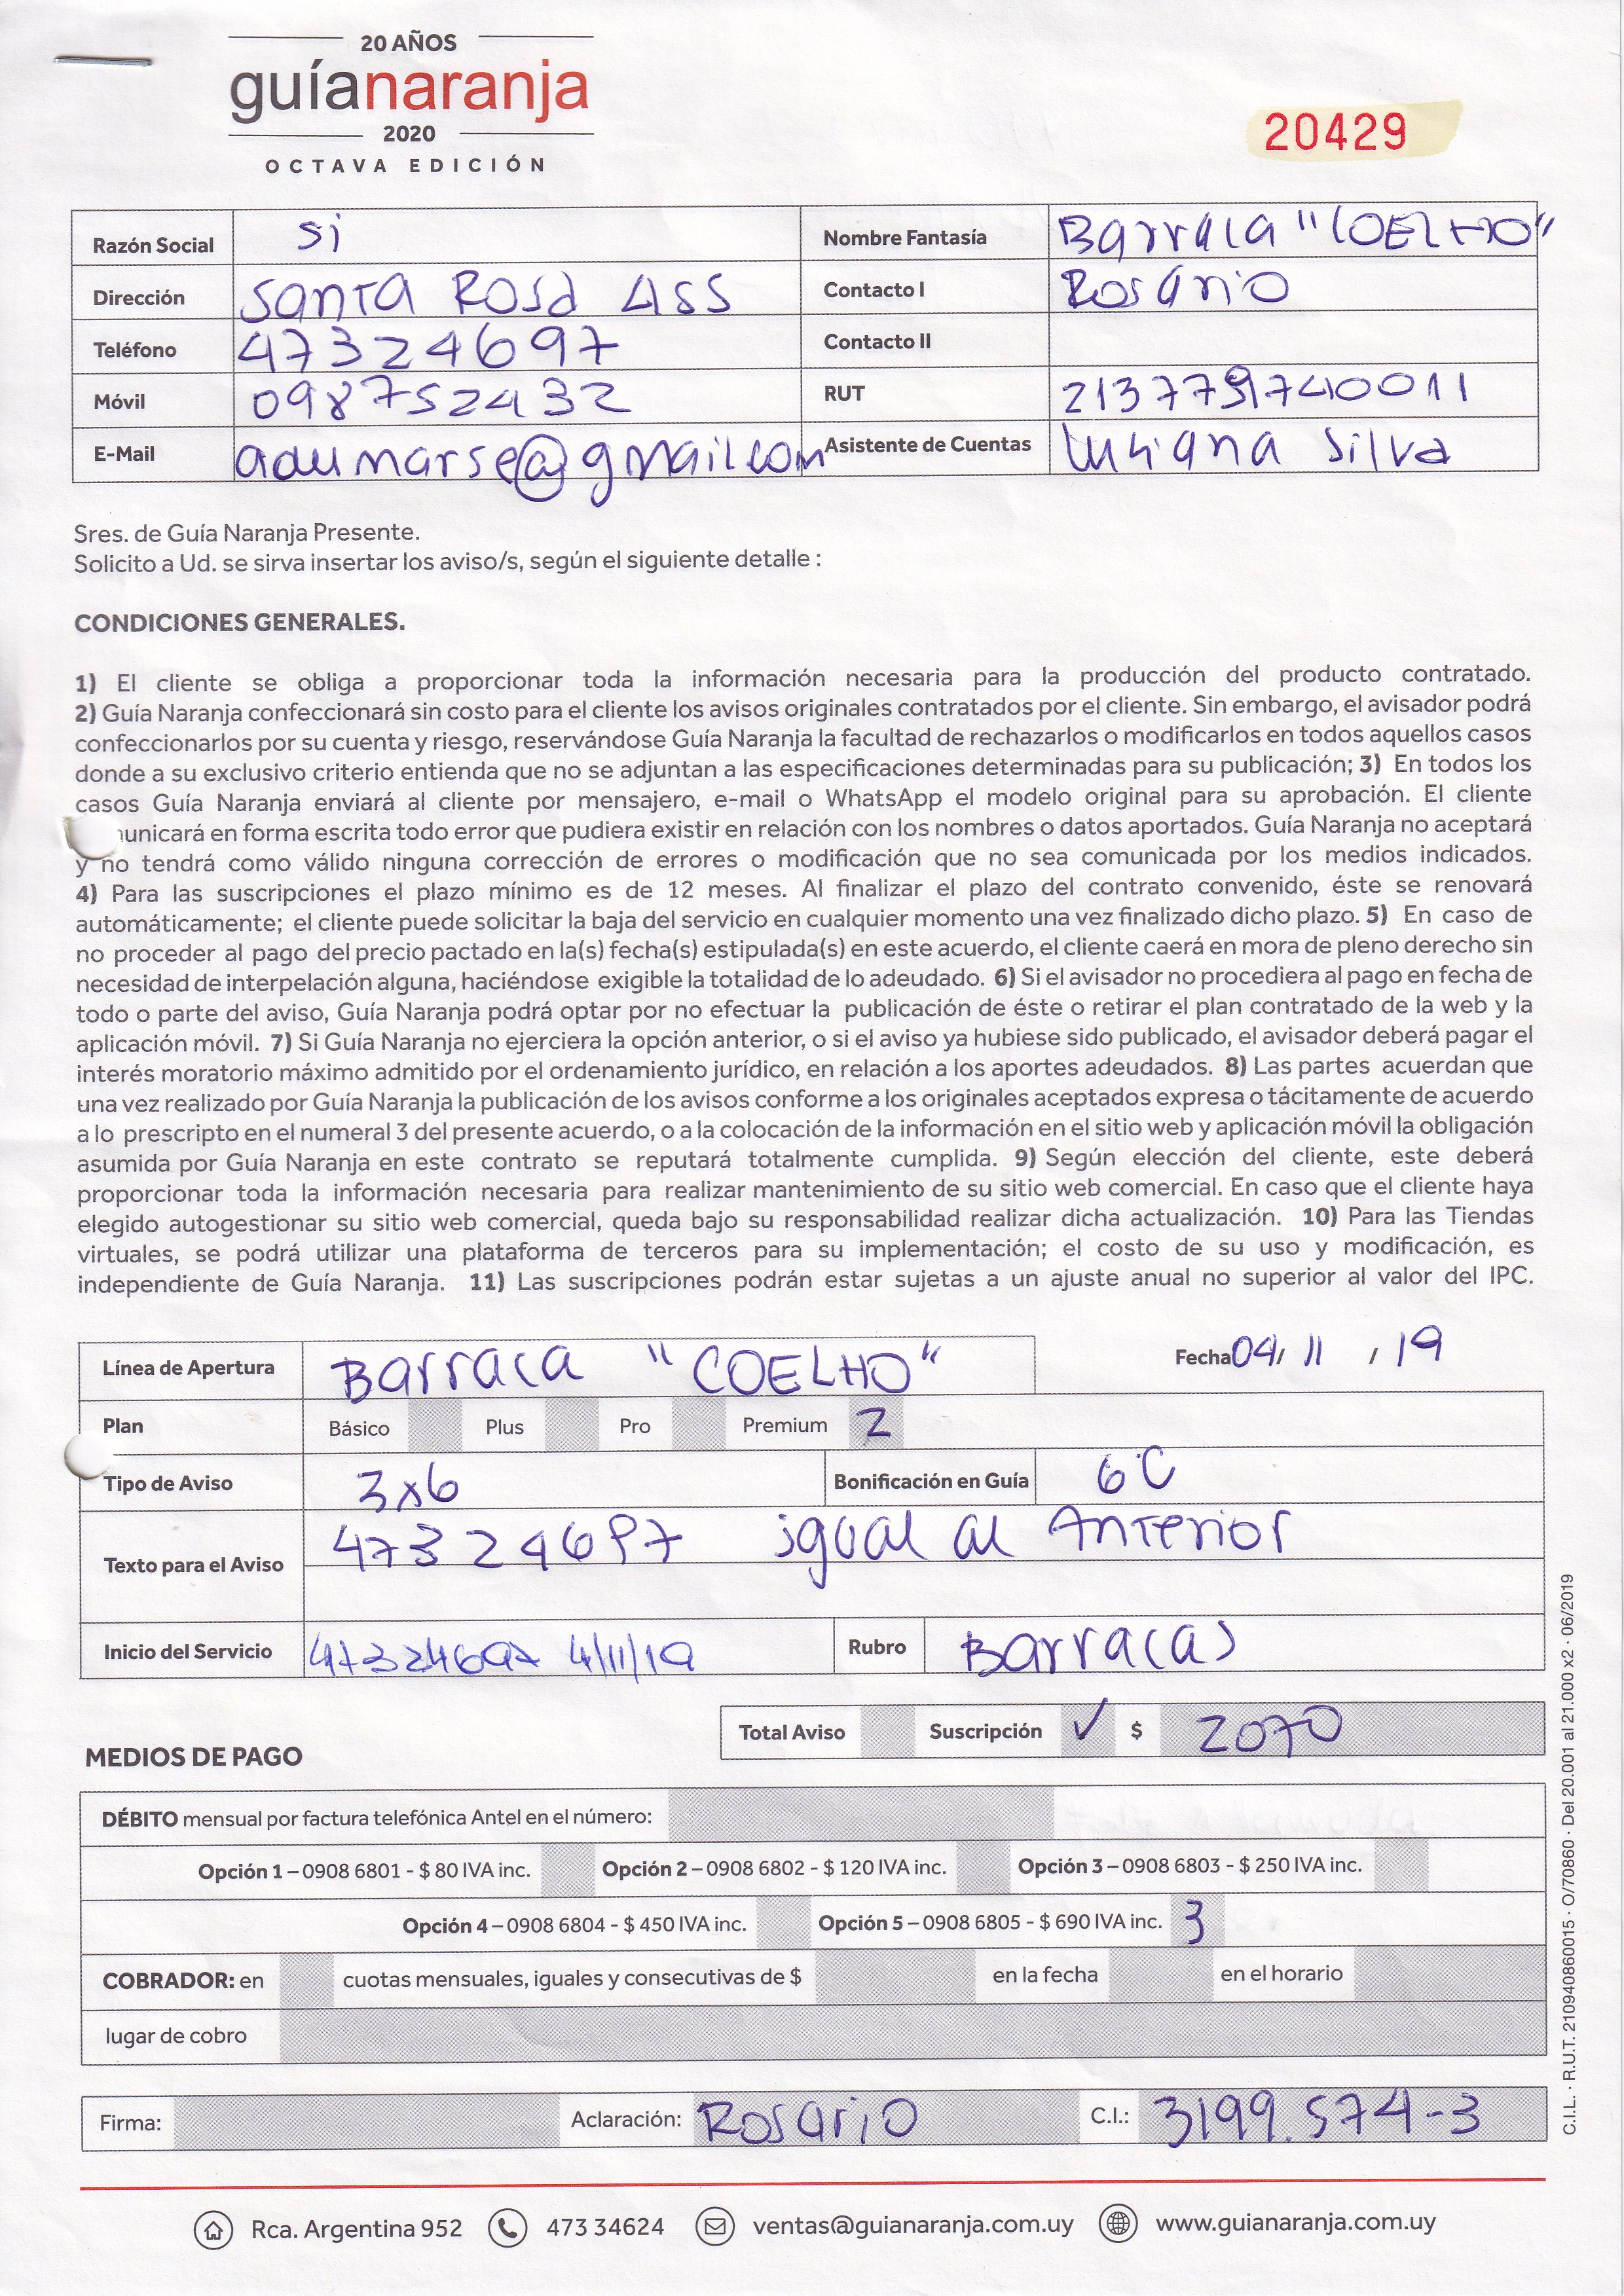 20 AÑOS
guíanaranja
2020
OCTAVA EDICIÓN
20429
Razón Social si Nombre Fantasía Barraca "COELHO"
Dirección Santa Rosa 455 Contacto I Rosario
Teléfono 47324697 Contacto II
Móvil 098752432 RUT 213779740011
E-Mail adumarse@gmail.com Asistente de Cuentas Luciana Silva
Sres. de Guía Naranja Presente.
Solicito a Ud. se sirva insertar los aviso/s, según el siguiente detalle :
CONDICIONES GENERALES.
1) El cliente se obliga a proporcionar toda la información necesaria para la producción del producto contratado.
2) Guía Naranja confeccionará sin costo para el cliente los avisos originales contratados por el cliente. Sin embargo, el avisador podrá
confeccionarlos por su cuenta y riesgo, reservándose Guía Naranja la facultad de rechazarlos o modificarlos en todos aquellos casos
donde a su exclusivo criterio entienda que no se adjuntan a las especificaciones determinadas para su publicación; 3) En todos los
casos Guía Naranja enviará al cliente por mensajero, e-mail o WhatsApp el modelo original para su aprobación. El cliente
unicará en forma escrita todo error que pudiera existir en relación con los nombres o datos aportados. Guía Naranja no aceptará
y no tendrá como válido ninguna corrección de errores o modificación que no sea comunicada por los medios indicados.
4) Para las suscripciones el plazo mínimo es de 12 meses. Al finalizar el plazo del contrato convenido, éste se renovará
automáticamente; el cliente puede solicitar la baja del servicio en cualquier momento una vez finalizado dicho plazo. 5) En caso de
no proceder al pago del precio pactado en la(s) fecha(s) estipulada(s) en este acuerdo, el cliente caerá en mora de pleno derecho sin
necesidad de interpelación alguna, haciéndose exigible la totalidad de lo adeudado. 6) Si el avisador no procediera al pago en fecha de
todo o parte del aviso, Guía Naranja podrá optar por no efectuar la publicación de éste o retirar el plan contratado de la web y la
aplicación móvil. 7) Si Guía Naranja no ejerciera la opción anterior, o si el aviso ya hubiese sido publicado, el avisador deberá pagar el
interés moratorio máximo admitido por el ordenamiento jurídico, en relación a los aportes adeudados. 8) Las partes acuerdan que
una vez realizado por Guía Naranja la publicación de los avisos conforme a los originales aceptados expresa o tácitamente de acuerdo
a lo prescripto en el numeral 3 del presente acuerdo, o a la colocación de la información en el sitio web y aplicación móvil la obligación
asumida por Guía Naranja en este contrato se reputará totalmente cumplida. 9) Según elección del cliente, este deberá
proporcionar toda la información necesaria para realizar mantenimiento de su sitio web comercial. En caso que el cliente haya
elegido autogestionar su sitio web comercial, queda bajo su responsabilidad realizar dicha actualización. 10) Para las Tiendas
virtuales, se podrá utilizar una plataforma de terceros para su implementación; el costo de su uso y modificación, es
independiente de Guía Naranja. 11) Las suscripciones podrán estar sujetas a un ajuste anual no superior al valor del IPC.
Línea de Apertura Barraca "COELHO" Fecha 04/ 11 / 19
Plan Básico Plus Pro Premium 2
Tipo de Aviso 3x6 Bonificación en Guía 6C
Texto para el Aviso 47324697 igual al Anterior
Inicio del Servicio 47324697 4/11/19 Rubro Barracas
Total Aviso Suscripción ✓ $ 2070
MEDIOS DE PAGO
DÉBITO mensual por factura telefónica Antel en el número:
Opción 1 – 0908 6801 - $ 80 IVA inc. Opción 2 – 0908 6802 - $ 120 IVA inc. Opción 3 – 0908 6803 - $ 250 IVA inc.
Opción 4 – 0908 6804 - $ 450 IVA inc. Opción 5 – 0908 6805 - $ 690 IVA inc. 3
COBRADOR: en cuotas mensuales, iguales y consecutivas de $ en la fecha en el horario
lugar de cobro
Firma: Aclaración: Rosario C.I.: 3199.574-3
C.I.L. · R.U.T. 210940860015 · O/70860 · Del 20.001 al 21.000 x2 · 06/2019
Rca. Argentina 952 473 34624 ventas@guianaranja.com.uy www.guianaranja.com.uy